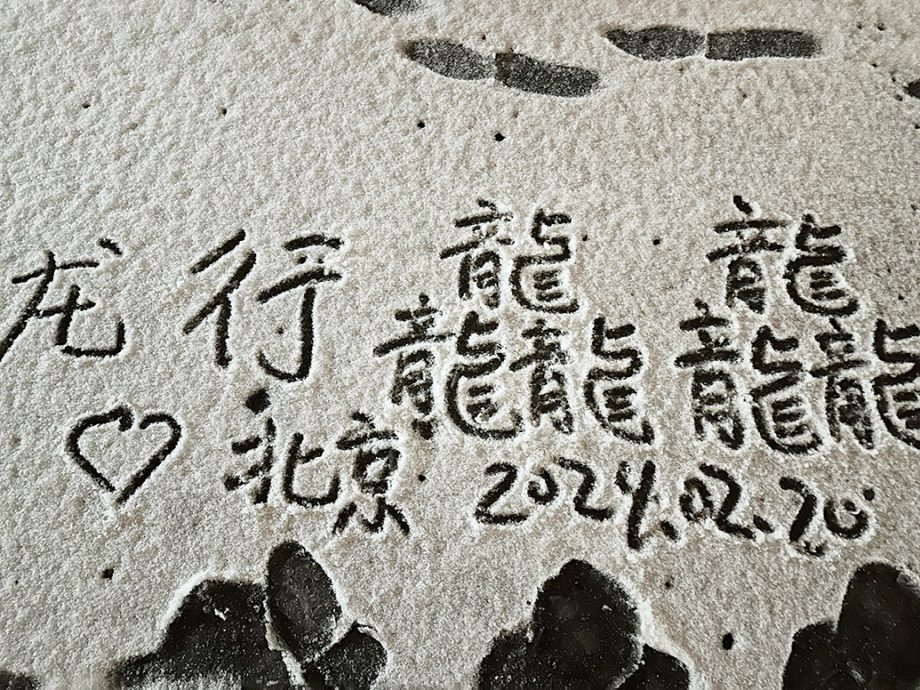 龙行龘龘
♡北京 2024.02.20